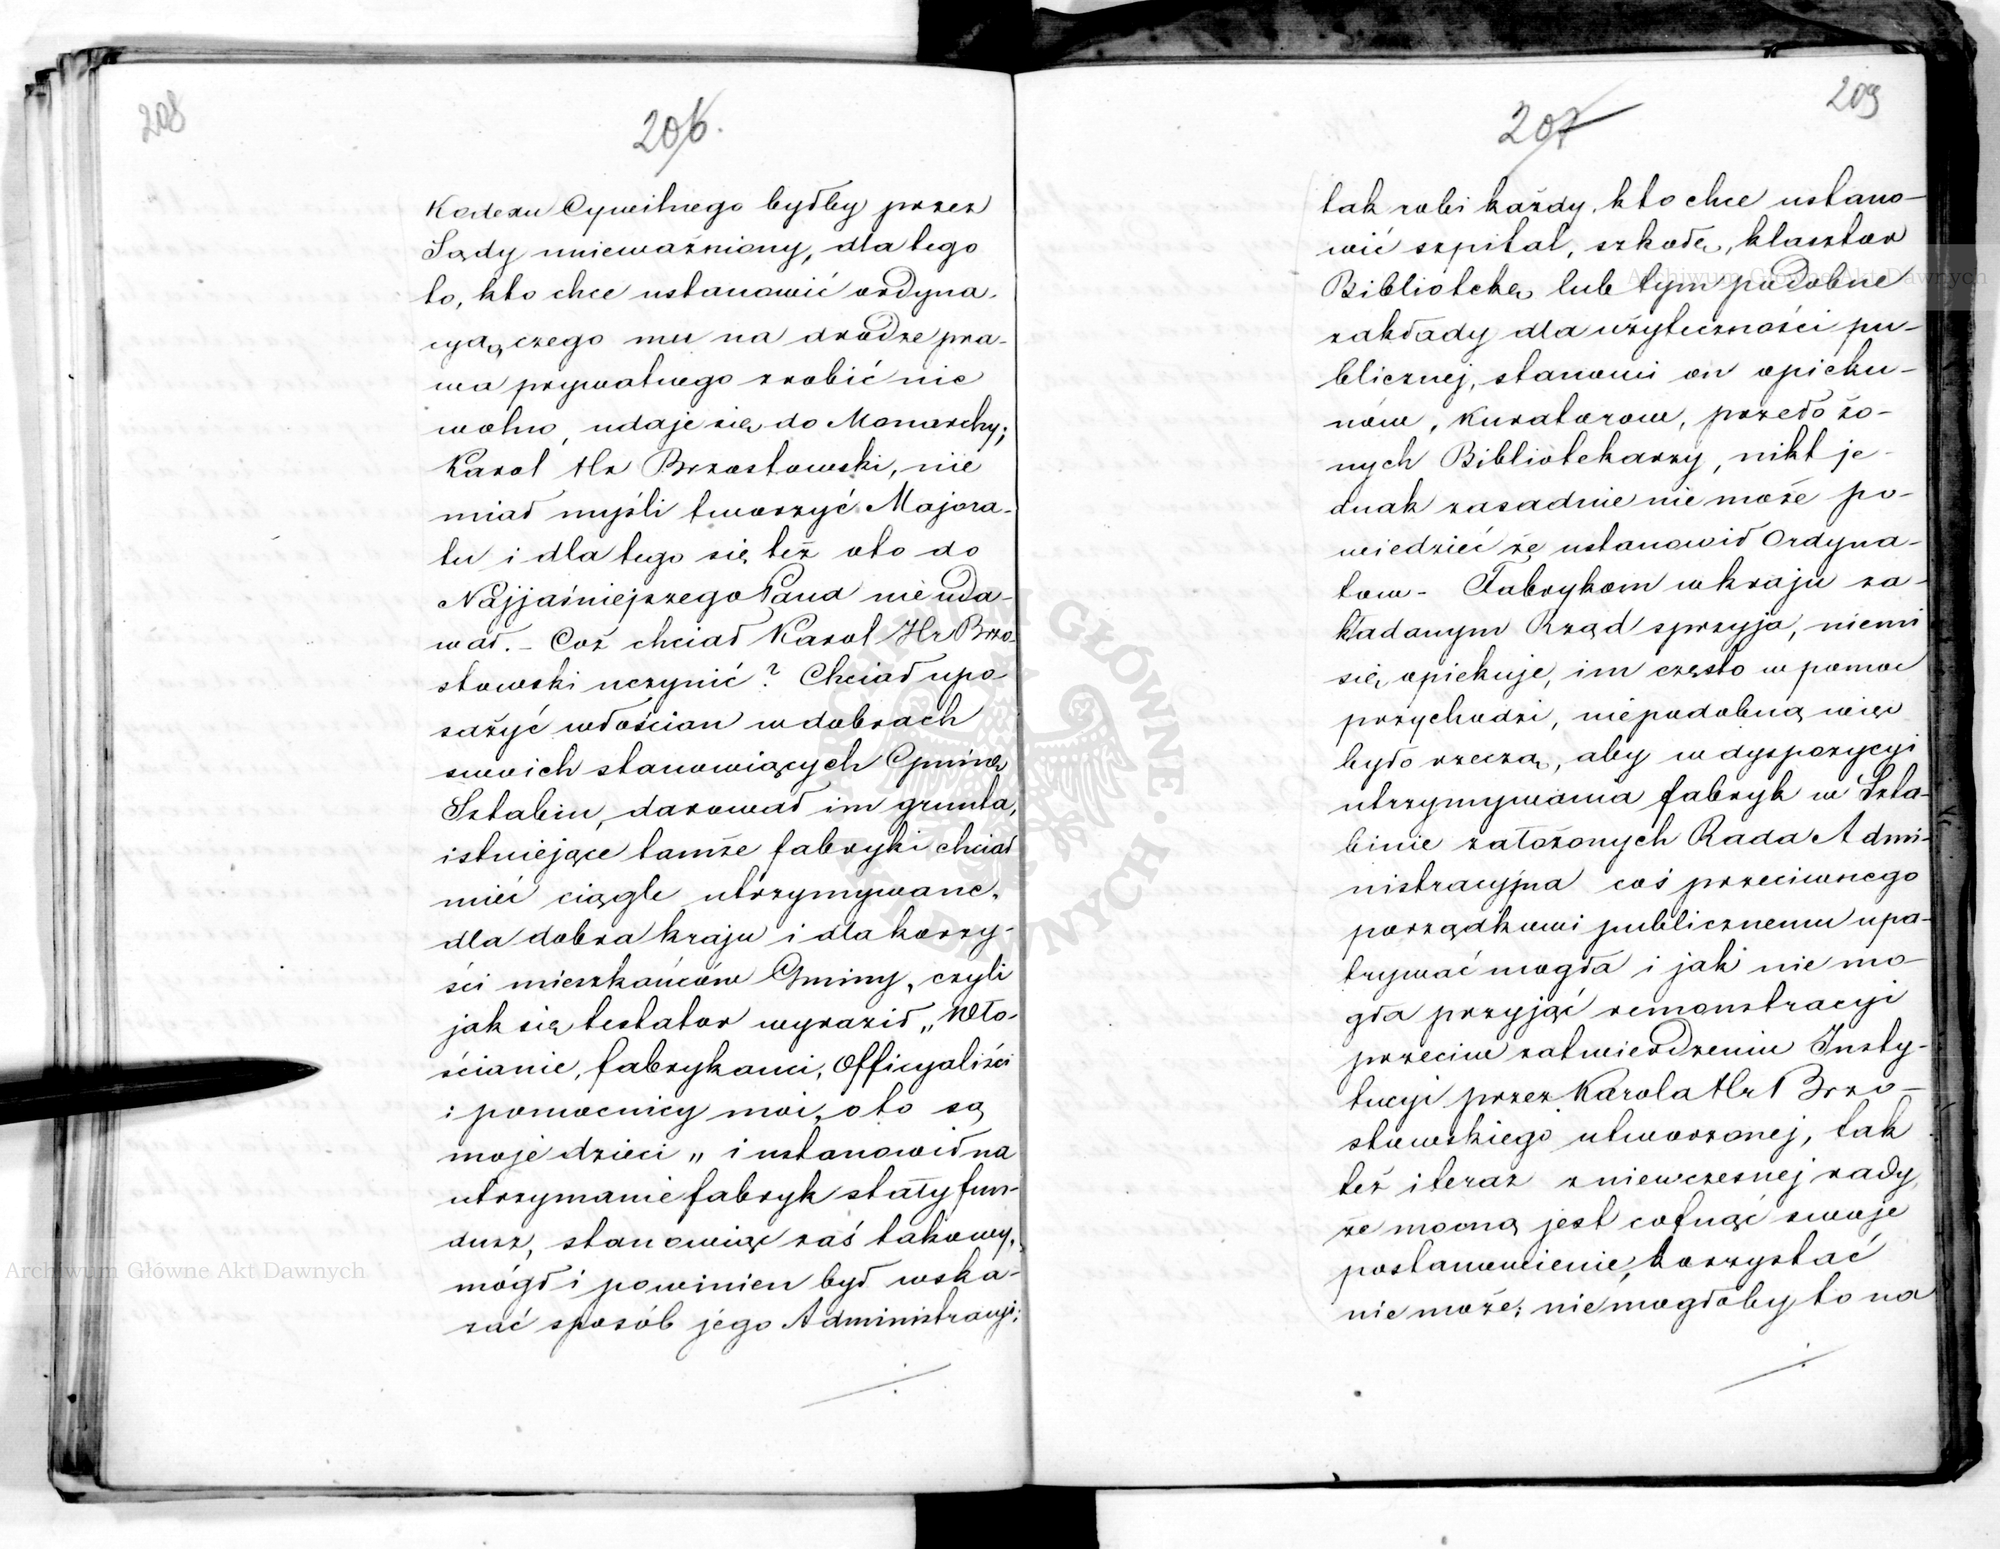 208
206.
Kodexu Cywilnego byłby przez
Sądy unieważniony, dla tego
to, kto chce ustanowić ordyna-
cyą, czego mu na drodze pra-
wa prywatnego zrobić nie
wolno, udaje się do Monarchy;
Karol Hr Brzostowski, nie
miał myśli tworzyć Majora-
tu i dla tego się też oto do
Najjaśniejszego Pana nie uda-
wał. – Coż chciał Karol Hr Brzo-
stowski uczynić? Chciał upo-
sażyć włościan w dobrach
swoich stanowiących Gminę
Sztabin, darował im grunta,
istniejące tamże fabryki chciał
mieć ciągle utrzymywane,
dla dobra kraju i dla korzy-
ści mieszkańców Gminy, czyli
jak się testator wyraził „Wło-
ścianie, fabrykanci, Officyaliści
i pomocnicy moi, oto są
moje dzieci „ i ustanowił na
utrzymanie fabryk stały fun-
dusz, stanowiąc zaś takowy,
mógł i powinien był wska-
zać sposób jego Administracyi;
209
207
tak robi każdy, kto chce ustano-
wić szpital, szkołę, klasztor
Bibliotekę lub tym podobne
zakłady dla użyteczności pu-
blicznej, stanowi on opieku-
nów, Kuratorow, przeło żo-
nych Bibliotekarzy, nikt je-
dnak zasadnie nie może po-
wiedzieć że ustanowił Ordyna-
tow – Fabrykom w kraju za-
kładanym Rząd sprzyja, niemi
się opiekuje, im często w pomoc
przychodzi, niepodobną więc
było rzeczą, aby w dyspozycyi
utrzymywania fabryk w Szta-
binie założonych Rada Admi-
nistracyjna coś przeciwnego
porządkowi publicznemu upa-
trywać mogła i jak nie mo-
gła przyjąć remonstracyi
przeciw zatwierdzeniu Insty-
tucyi przez Karola Hr Brzo-
stowskiego utworzonej, tak
też i teraz z niewczesnej rady,
że mocną jest cofnąć swoje
postanowienie, korzystać
nie może; nie mogłoby to na
Archiwum Główne Akt Dawnych
Archiwum Główne Akt Dawnych